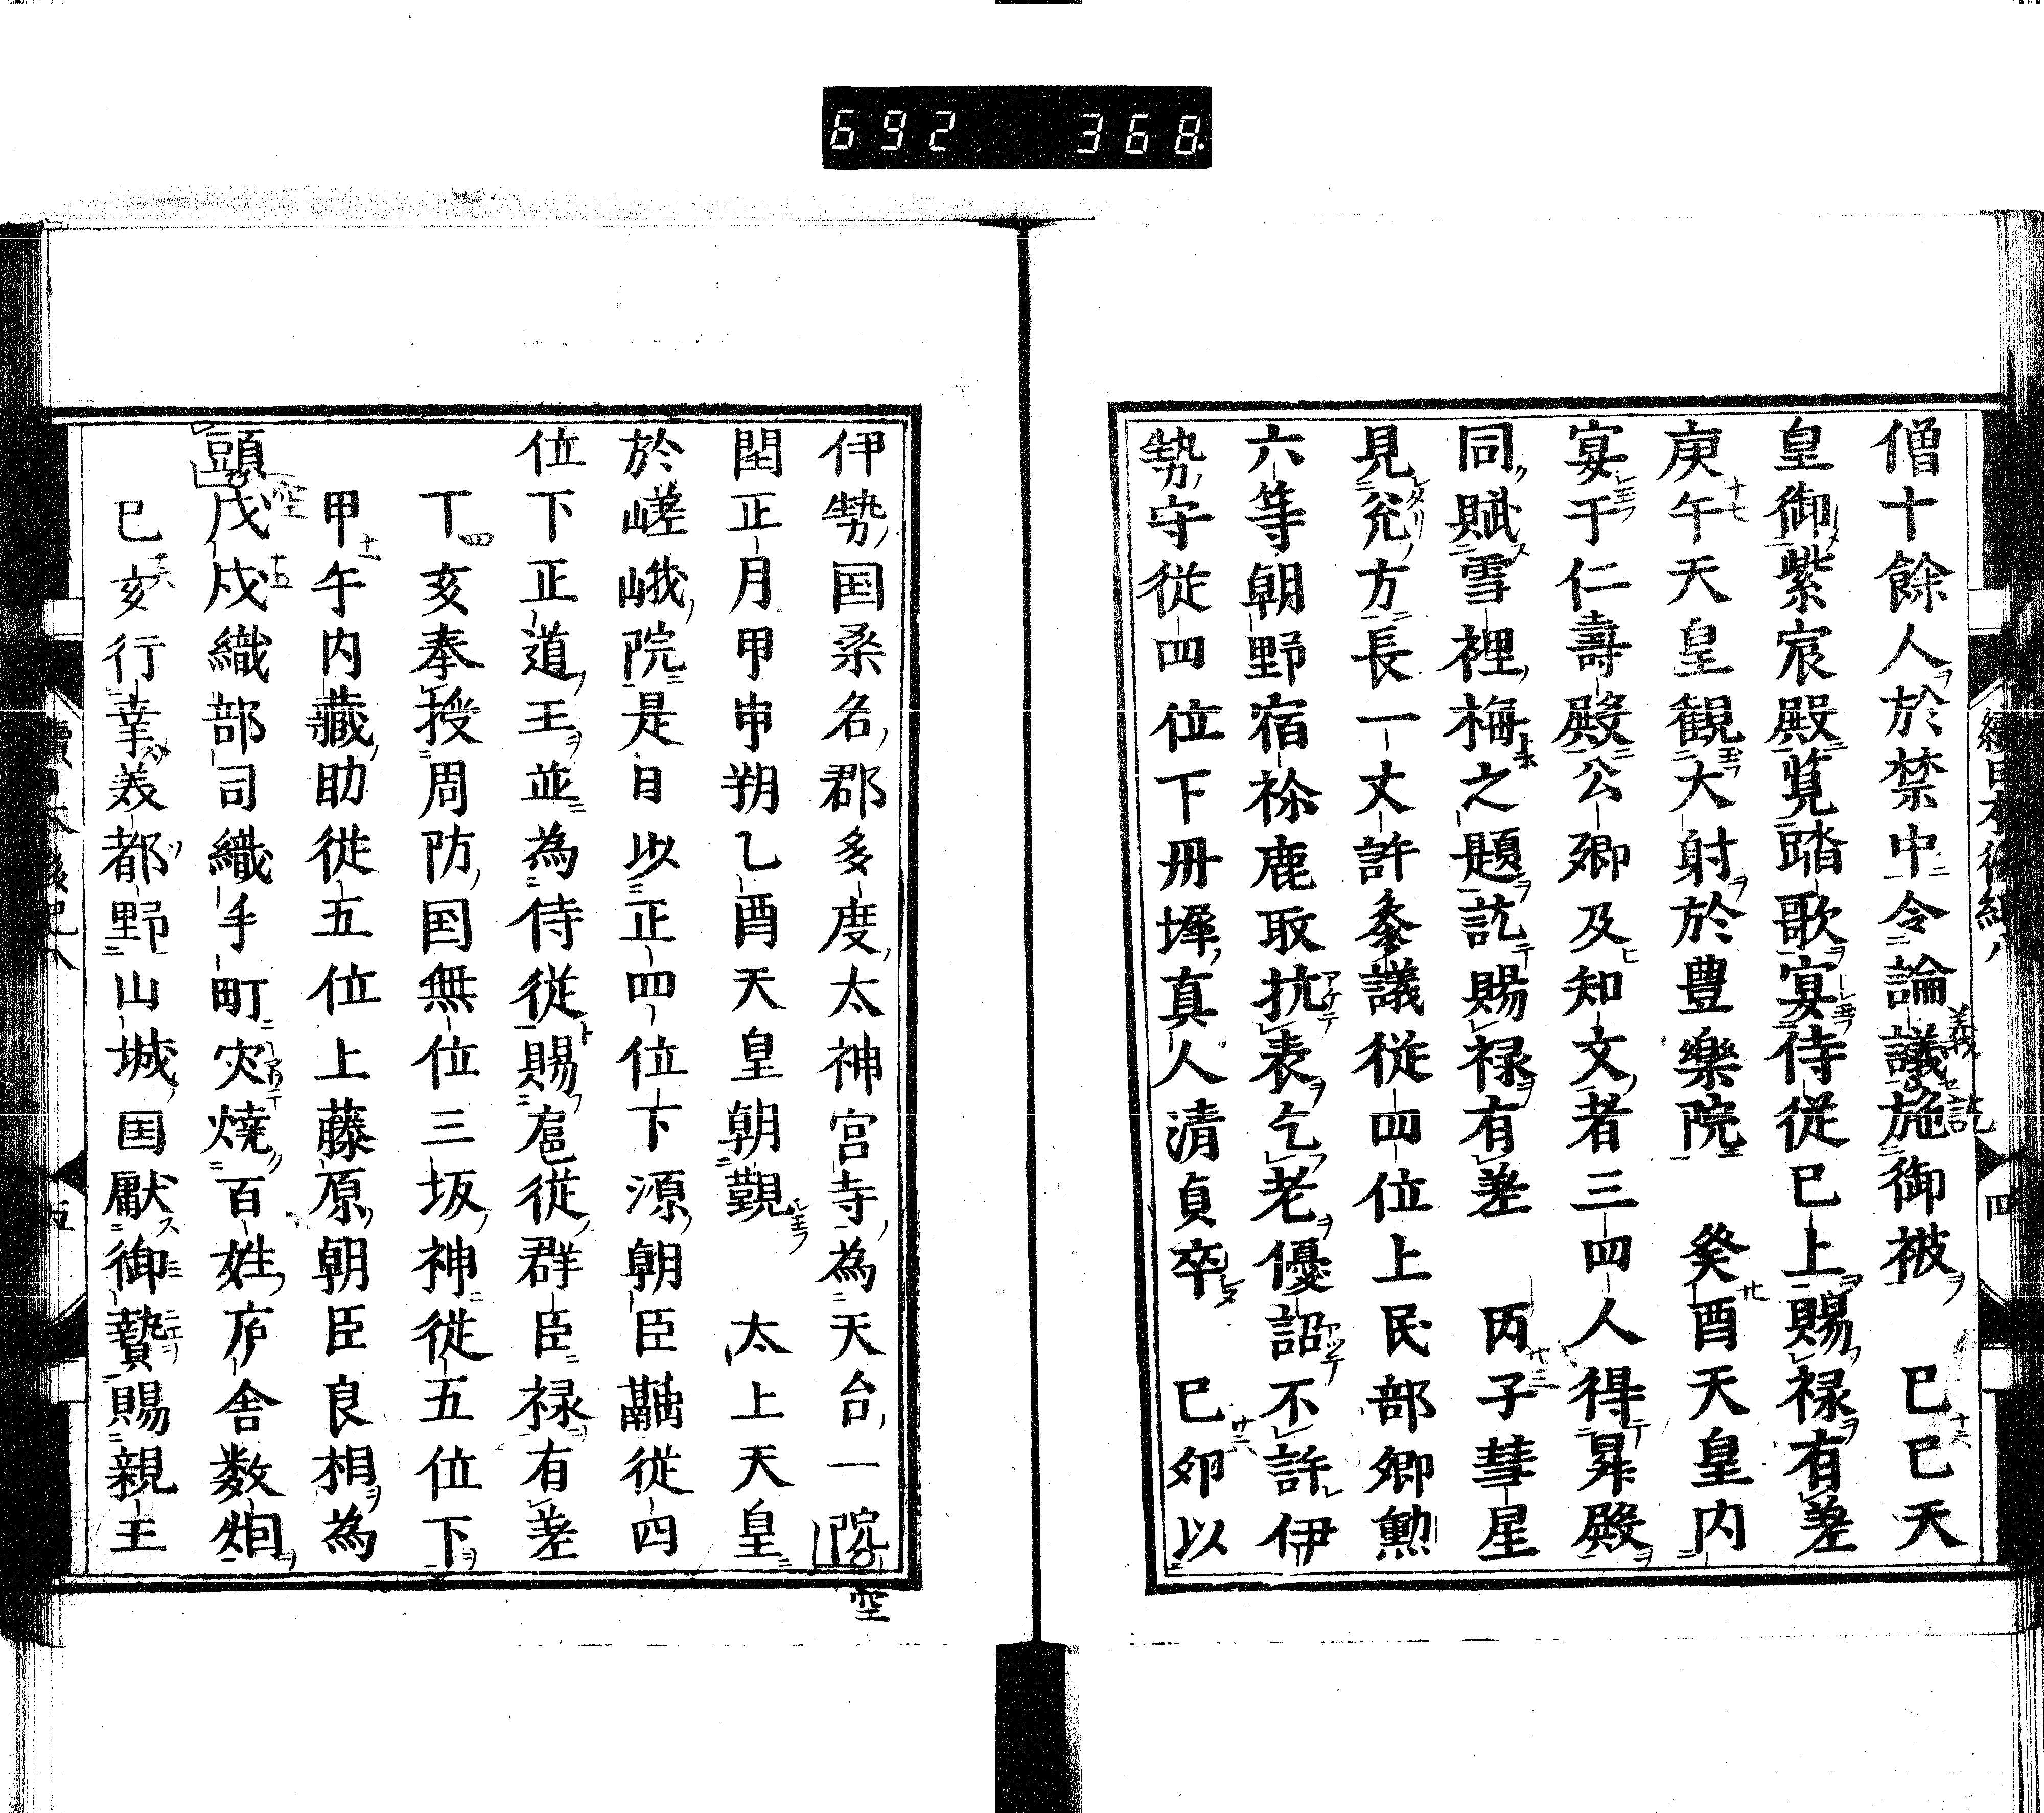 692 368
僧十餘人於禁中令論議施御被　已巳天
皇御紫宸殿覧踏歌宴侍従已上賜禄有差
庚午天皇観大射於豊樂院　癸酉天皇内
宴于仁壽殿公卿及知文者三四人得昇殿
同賦雪裡梅之題訖賜禄有差　丙子彗星
見兊方長一丈許叅議従四位上民部卿勲
六等朝野宿祢鹿取抗表乞老優詔不許伊
勢守従四位下丹墀真人清貞卒　已夘以
伊勢国桑名郡多度太神宮寺為天台一院
閏正月甲申朔乙酉天皇朝覲　太上天皇
於嵯峨院是日以正四位下源朝臣　従四
位下正道王並為侍従賜扈従群臣禄有差
丁亥奉授周防国無位三坂神従五位下
甲午内藏助従五位上藤原朝臣良相為
頭戊戍織部司織手町灾燒百姓庐舎数烟
已亥行幸㸚都野山城国獻御贄賜親王